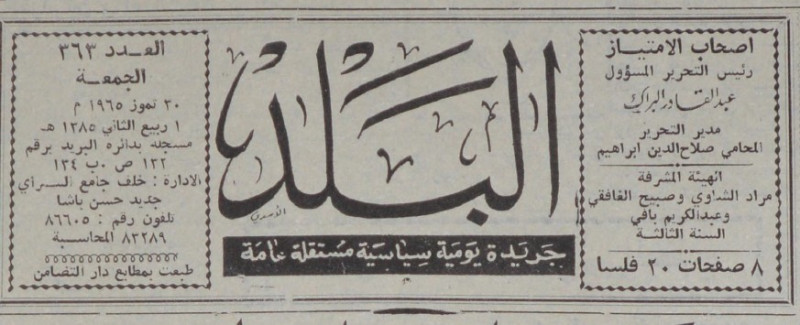 اصحاب الامتياز
رئيس التحرير المسؤول
عبدالقادر البراك
مدير التحرير
المحامي صلاح الدين ابراهيم
الهيئة المشرفة
مراد الشاوي وصبيح الغافقي
وعبدالكريم بافي
السنة الثالثة
٨ صفحات ٢٠ فلسا
البلد
جريدة يومية سياسية مستقلة عامة
العدد ٣٦٣
الجمعة
٣٠ تموز ١٩٦٥ م
١ ربيع الثاني ١٣٨٥ هـ
مسجله بدائره البريد برقم
١٣٢ ص ٠ب ١٣٤
الادارة : خلف جامع السراي
جديد حسن باشا
تلفون رقم : ٨٦٦٠٥
٨٣٢٨٩ المحاسبة
طبعت بمطابع دار التضامن